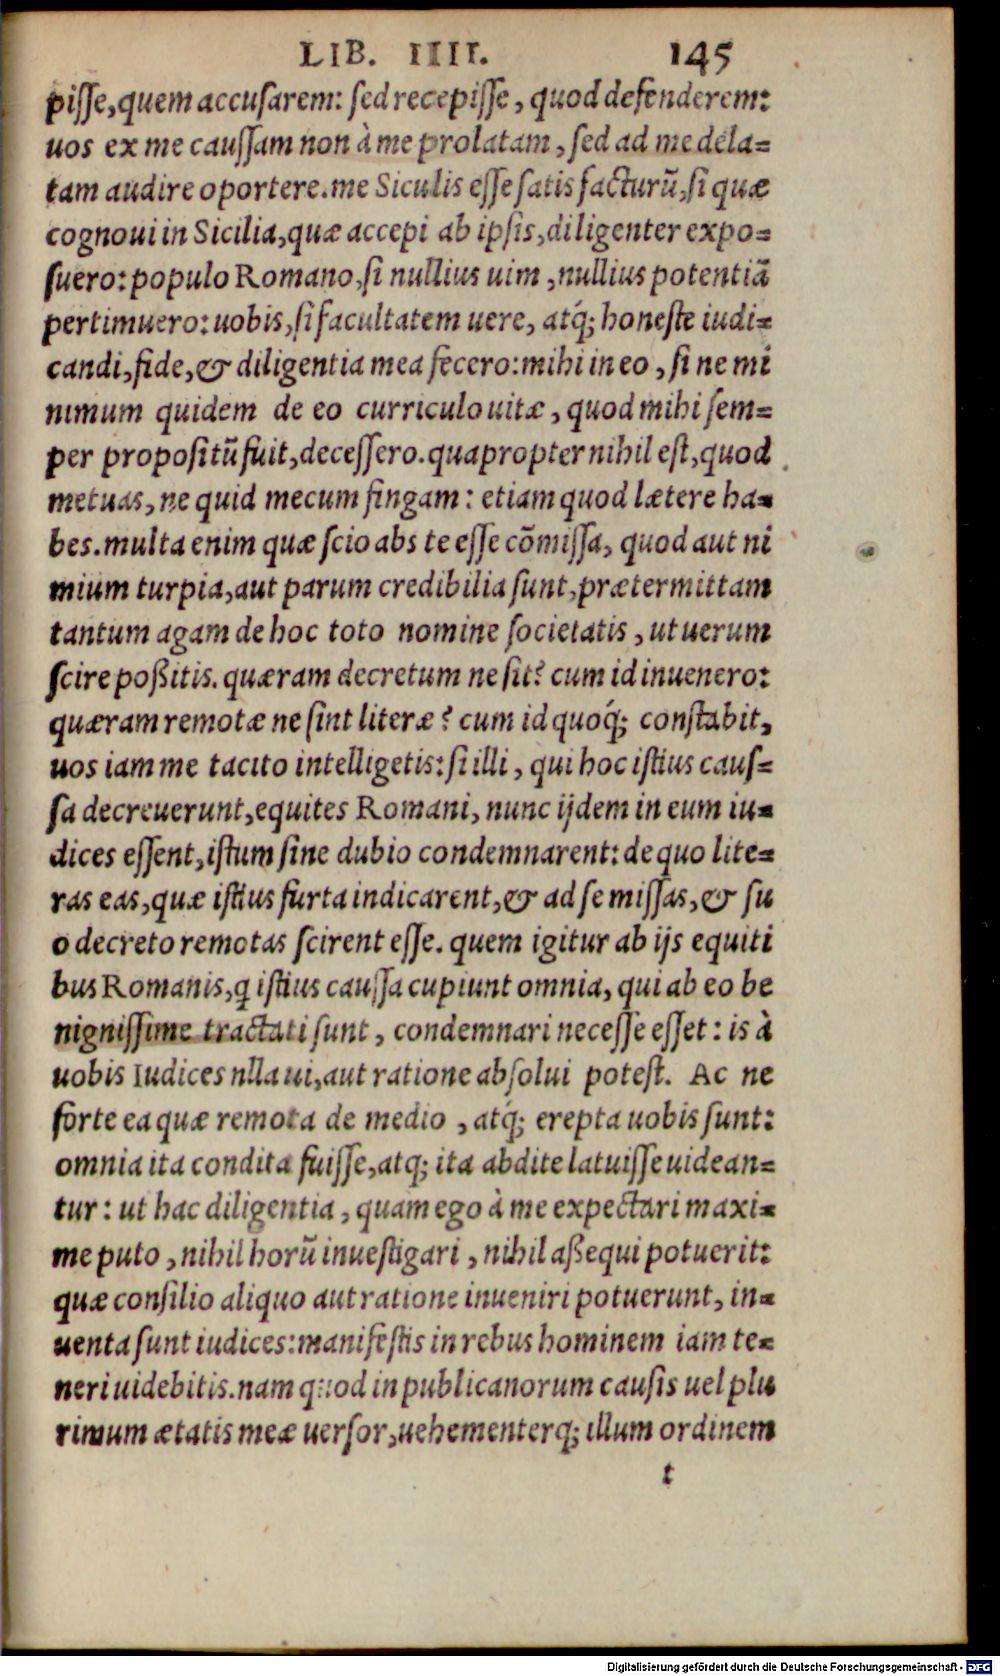 LIB. IIII. 145
pisse, quem accusarem: sed recepisse, quod defenderem:
uos ex me caussam non à me prolatam, sed ad me dela=
tam audire oportere. me Siculis esse satis facturū, si quæ
cognoui in Sicilia, quæ accepi ab ipsis, diligenter expo=
suero: populo Romano, si nullius uim, nullius potentiā
pertimuero: uobis, si facultatem uere, atq́; honeste iudi=
candi, fide, & diligentia mea fecero: mihi in eo, si ne mi
nimum quidem de eo curriculo uitæ, quod mihi sem=
per propositū fuit, decessero. quapropter nihil est, quod
metuas, ne quid mecum fingam: etiam quod lætere ha=
bes. multa enim quæ scio abs te esse cōmissa, quod aut ni
mium turpia, aut parum credibilia sunt, prætermittam
tantum agam de hoc toto nomine societatis, ut uerum
scire poßitis. quæram decretum ne sit? cum id inuenero:
quæram remotæ ne sint literæ? cum id quoq́; constabit,
uos iam me tacito intelligetis: si illi, qui hoc istius caus=
sa decreuerunt, equites Romani, nunc ijdem in eum iu=
dices essent, istum sine dubio condemnarent: de quo lite=
ras eas, quæ istius furta indicarent, & ad se missas, & su
o decreto remotas scirent esse. quem igitur ab ijs equiti
bus Romanis, q istius caussa cupiunt omnia, qui ab eo be
nignissime tractati sunt, condemnari necesse esset: is à
uobis Iudices nlla ui, aut ratione absolui potest. Ac ne
forte ea quæ remota de medio, atq́; erepta uobis sunt:
omnia ita condita fuisse, atq; ita abdite latuisse uidean=
tur: ut hac diligentia, quam ego à me expectari maxi=
me puto, nihil horū inuestigari, nihil aßequi potuerit:
quæ consilio aliquo aut ratione inueniri potuerunt, in=
uenta sunt iudices: manifestis in rebus hominem iam te=
neri uidebitis. nam quod in publicanorum causis uel plu
rimum ætatis meæ uersor, uehementerq; illum ordinem
t
Digitalisierung gefördert durch die Deutsche Forschungsgemeinschaft - DFG